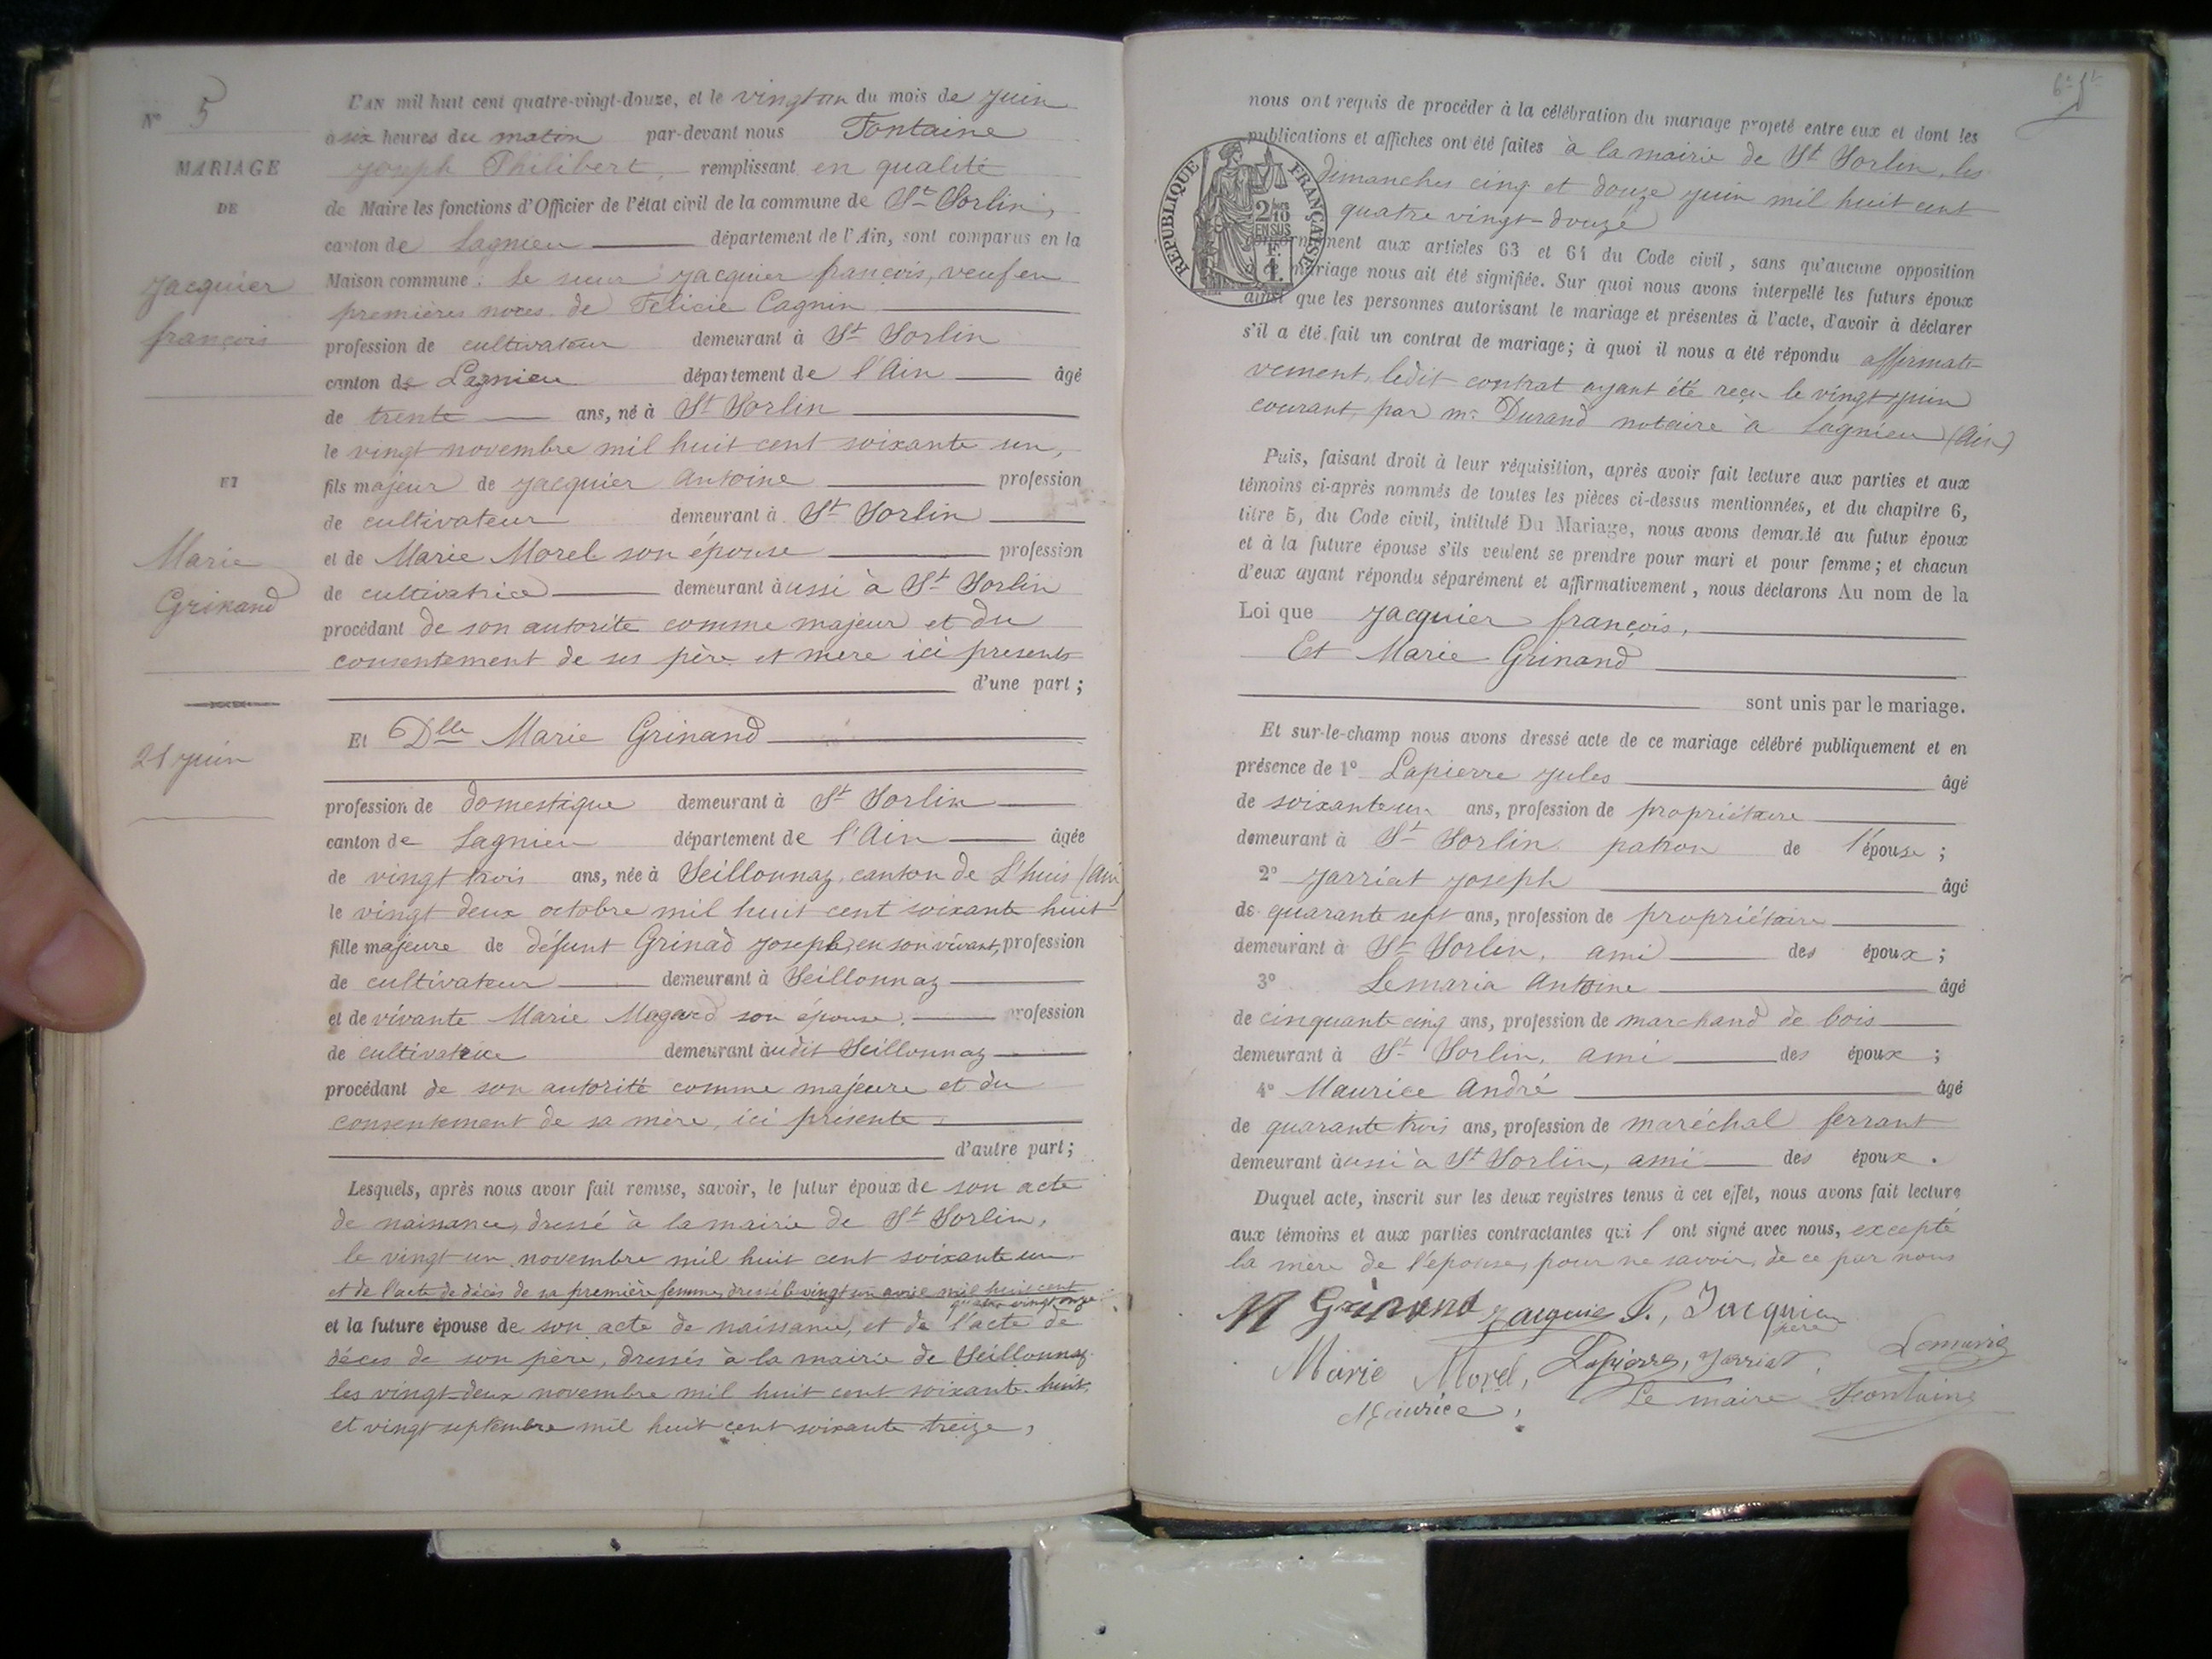 N° 5
MARIAGE
DE
Jacquier
françois
ET
Marie
Grinand
21 juin
L'AN mil huit cent quatre-vingt-douze, et le vingt un du mois de juin
à six heures du matin par-devant nous Fontaine
Joseph Philibert, remplissant en qualité
de Maire les fonctions d'Officier de l'état civil de la commune de St Sorlin,
canton de Lagnieu département de l'Ain, sont comparus en la
Maison commune : le sieur Jacquier françois, veuf en
premières noces de Félicie Cagnin
profession de cultivateur demeurant à St Sorlin
canton de Lagnieu département de l'Ain âgé
de trente ans, né à St Sorlin
le vingt novembre mil huit cent soixante un,
fils majeur de Jacquier Antoine profession
de cultivateur demeurant à St Sorlin
et de Marie Morel son épouse profession
de cultivatrice demeurant aussi à St Sorlin
procédant de son autorité comme majeur et du
consentement de ses père et mère ici présents
d'une part ;
Et Dlle Marie Grinand
profession de domestique demeurant à St Sorlin
canton de Lagnieu département de l'Ain âgée
de vingt trois ans, née à Seillonnaz, canton de L'huis (Ain)
le vingt deux octobre mil huit cent soixante huit
fille majeure de défunt Grinad Joseph, en son vivant, profession
de cultivateur demeurant à Seillonnaz
et de vivante Marie Magard son épouse, profession
de cultivatrice demeurant audit Seillonnaz
procédant de son autorité comme majeure et du
consentement de sa mère, ici présente
d'autre part;
Lesquels, après nous avoir fait remise, savoir, le futur époux de son acte
de naissance, dressé à la mairie de St Sorlin,
le vingt un novembre mil huit cent soixante un
et de l'acte de décès de sa première femme, dressé le vingt un avril mil huit cent
quatre vingt onze
et la future épouse de son acte de naissance, et de l'acte de
décès de son père, dressés à la mairie de Seillonnaz
les vingt-deux novembre mil huit cent soixante-huit,
et vingt septembre mil huit cent soixante treize,
nous ont requis de procéder à la célébration du mariage projeté entre eux et dont les
publications et affiches ont été faites à la mairie de St Sorlin, les
dimanches cinq et douze juin mil huit cent
quatre vingt-douze
conformément aux articles 63 et 64 du Code civil, sans qu'aucune opposition
audit mariage nous ait été signifiée. Sur quoi nous avons interpellé les futurs époux
ainsi que les personnes autorisant le mariage et présentes à l'acte, d'avoir à déclarer
s'il a été fait un contrat de mariage; à quoi il nous a été répondu affirmati-
vement, ledit contrat ayant été reçu le vingt juin
courant, par me Durand notaire à Lagnieu (Ain)
RÉPUBLIQUE FRANÇAISE
2/10
EN SUS
F.
1.
Puis, faisant droit à leur réquisition, après avoir fait lecture aux parties et aux
témoins ci-après nommés de toutes les pièces ci-dessus mentionnées, et du chapitre 6,
titre 5, du Code civil, intitulé Du Mariage, nous avons demandé au futur époux
et à la future épouse s'ils veulent se prendre pour mari et pour femme; et chacun
d'eux ayant répondu séparément et affirmativement, nous déclarons Au nom de la
Loi que Jacquier françois,
Et Marie Grinand
sont unis par le mariage.
Et sur-le-champ nous avons dressé acte de ce mariage célébré publiquement et en
présence de 1° Lapierre Jules âgé
de soixante un ans, profession de propriétaire
demeurant à St Sorlin patron de l'épouse ;
2° Jarriat Joseph âgé
de quarante sept ans, profession de propriétaire
demeurant à St Sorlin, ami des époux ;
3° Lemaria Antoine âgé
de cinquante cinq ans, profession de marchand de bois
demeurant à St Sorlin, ami des époux ;
4° Maurice André âgé
de quarante trois ans, profession de maréchal ferrant
demeurant aussi à St Sorlin, ami des époux.
Duquel acte, inscrit sur les deux registres tenus à cet effet, nous avons fait lecture
aux témoins et aux parties contractantes qui l'ont signé avec nous, excepté
la mère de l'épouse, pour ne savoir, de ce par nous
M Grinand Jacquier F., Jacquier
père
Marie Morel, Lapierre, Jarriat, Lemaria
Maurice, Le maire Fontaine